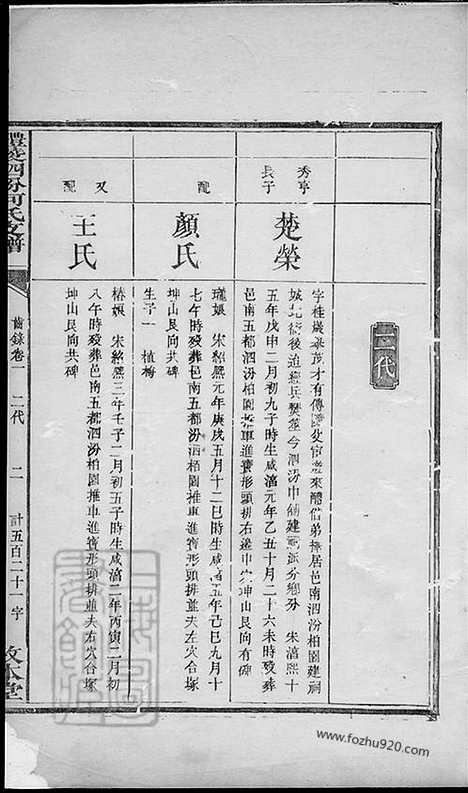 二代
秀亭
長子
楚榮
字桂巖
五年戊申二月初九子時生咸淳元年乙丑十月二十六未時歿葬
邑南五都泗汾柏園推車進寶形頭排右邊申坤山艮向有碑
配
顏氏
瓊娘 宋紹熙元年庚戌五月十二巳時生咸淳五年己巳九月十
七午時歿葬邑南五都汾泗栢園推車進寶形頭排並夫左穴合塚
坤山艮向共碑
生子一 植梅
又
配
王氏
椿娘 宋紹熙三年壬子二月初五子時生咸淳二年丙寅二月初
八午時歿葬邑南五都泗汾柏園推車進寶形頭排並夫右穴合塚
坤山艮向共碑
醴陵泗汾何氏支譜
齒錄卷一
二代
二
計五百二十一字
敦本堂
www.fozhu920.com